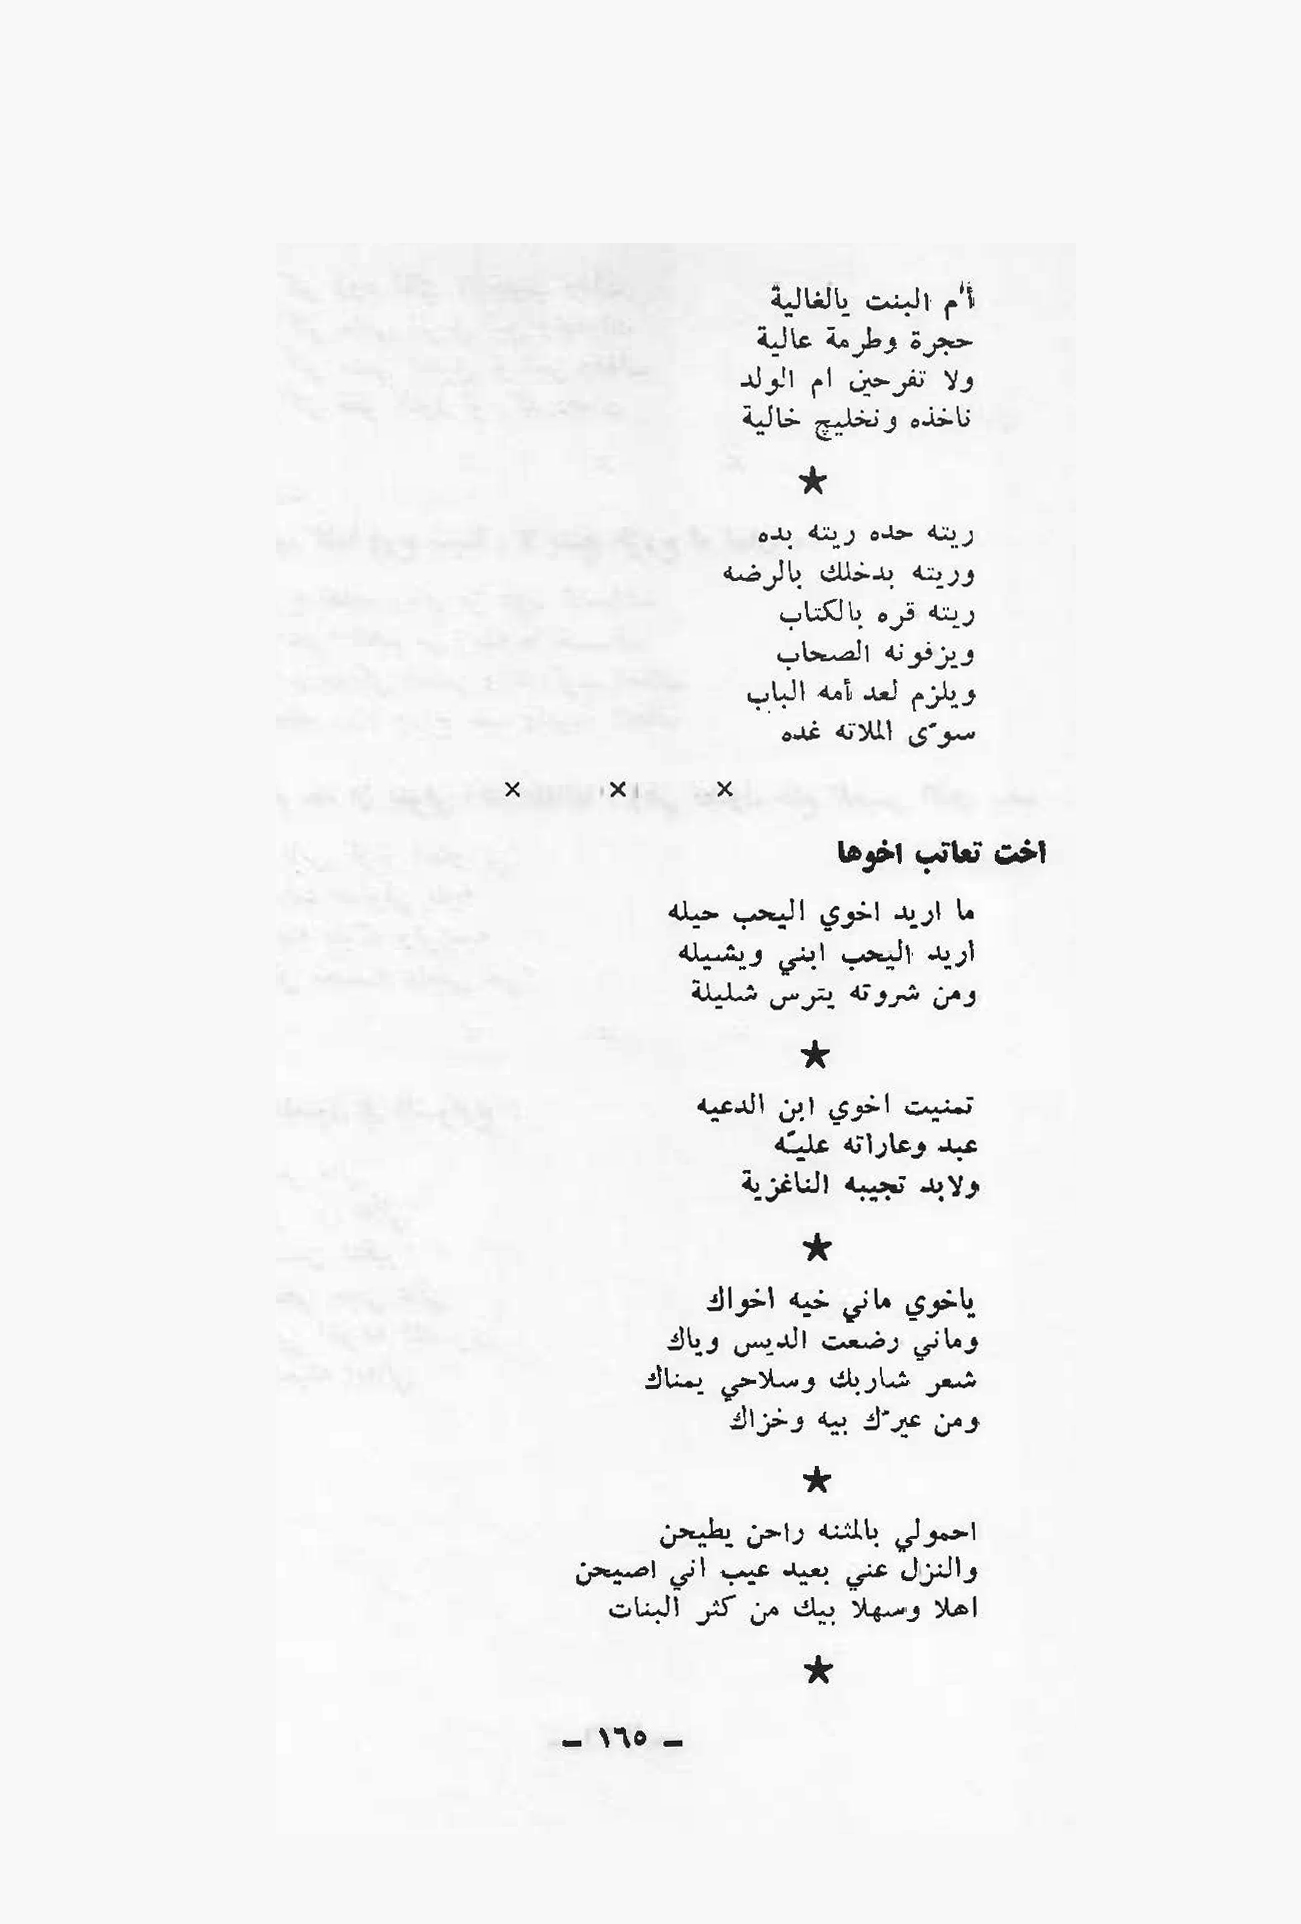 أ'م البنت يالغالية
حجرة وطرمة عالية
ولا تفرحين ام الولد
ناخذه ونخليچ خالية
★
ريته حده ريته بده
وريته بدخلك بالرضه
ريته قره بالكتاب
ويزفونه الصحاب
ويلزم لعد أمه الباب
سوّى الملاته غده
× × ×
اخت تعاتب اخوها
ما اريد اخوي اليحب حيله
اريد اليحب ابني ويشيله
ومن شروته يترس شليلة
★
تمنيت اخوي ابن الدعيه
عبد وعاراته عليّه
ولابد تجيبه الناغزية
★
ياخوي ماني خيه اخواك
وماني رضعت الديس وياك
شعر شاربك وسلاحي يمناك
ومن عيرّك بيه وخزاك
★
احمولي بالمثنه راحن يطيحن
والنزل عني بعيد عيب اني اصيحن
اهلا وسهلا بيك من كثر البنات
★
– ١٦٥ –